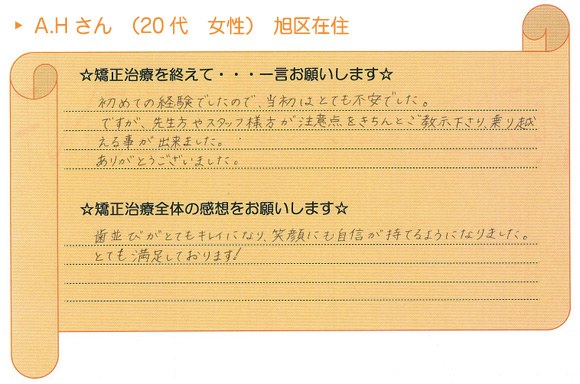 ▶ A.Hさん （20代　女性） 旭区在住
☆矯正治療を終えて・・・一言お願いします☆
初めての経験でしたので、当初はとても不安でした。
ですが、先生方やスタッフ様方が注意点をきちんとご教示下さり、乗り越
える事が出来ました。
ありがとうございました。
☆矯正治療全体の感想をお願いします☆
歯並びがとてもキレイになり、笑顔にも自信が持てるようになりました。
とても満足しております!